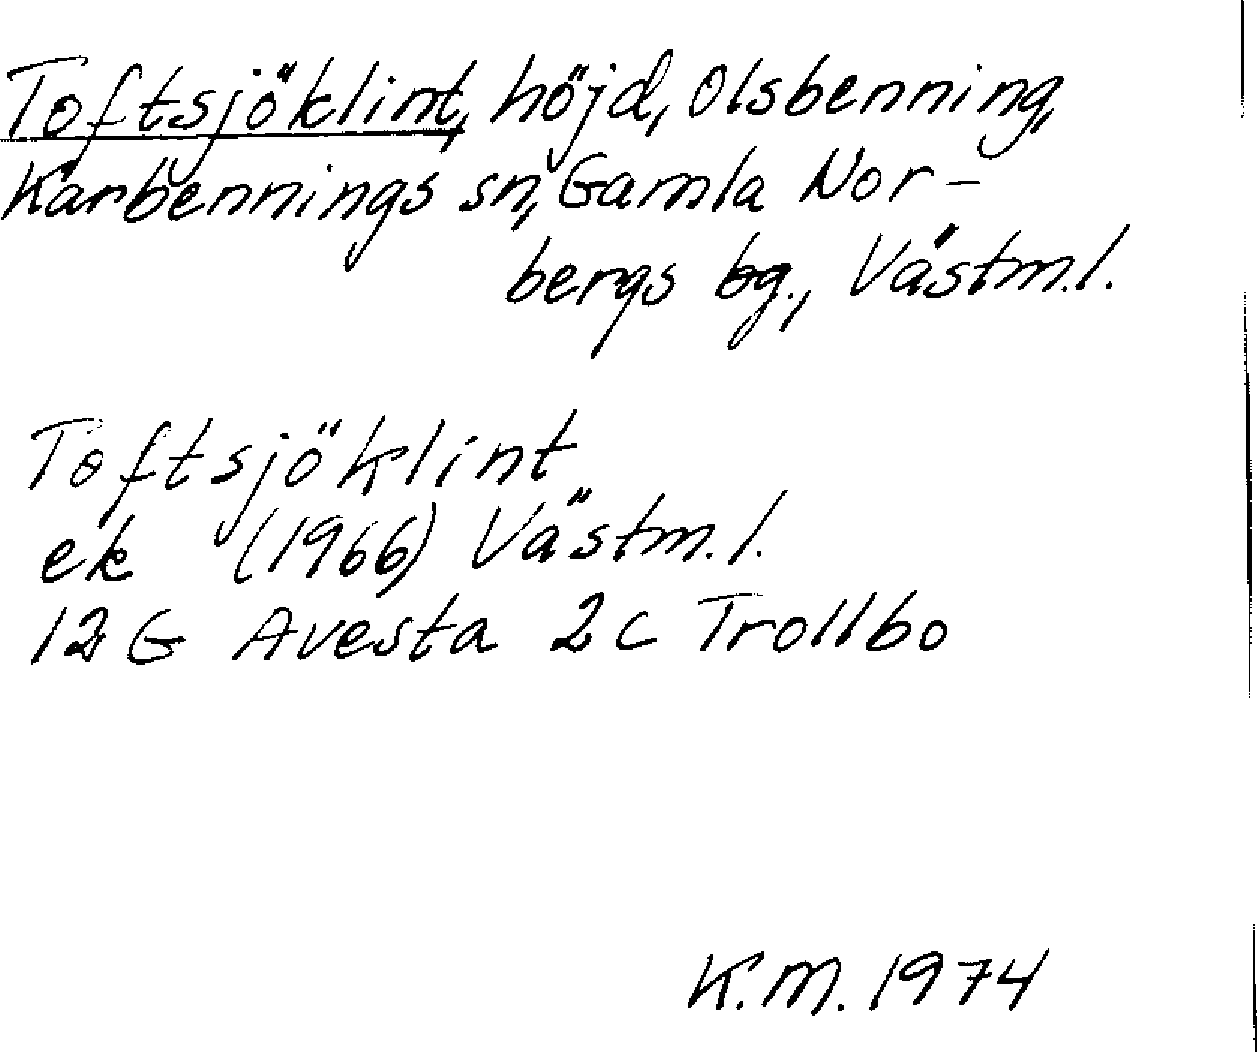 Toftsjöklint, höjd, Olsbenning,
Karbennings sn, Gamla Nor-
bergs bg., Västm.l.
Toftsjöklint
ek (1966) Västm.l.
12 G Avesta 2c Trollbo
K.M. 1974